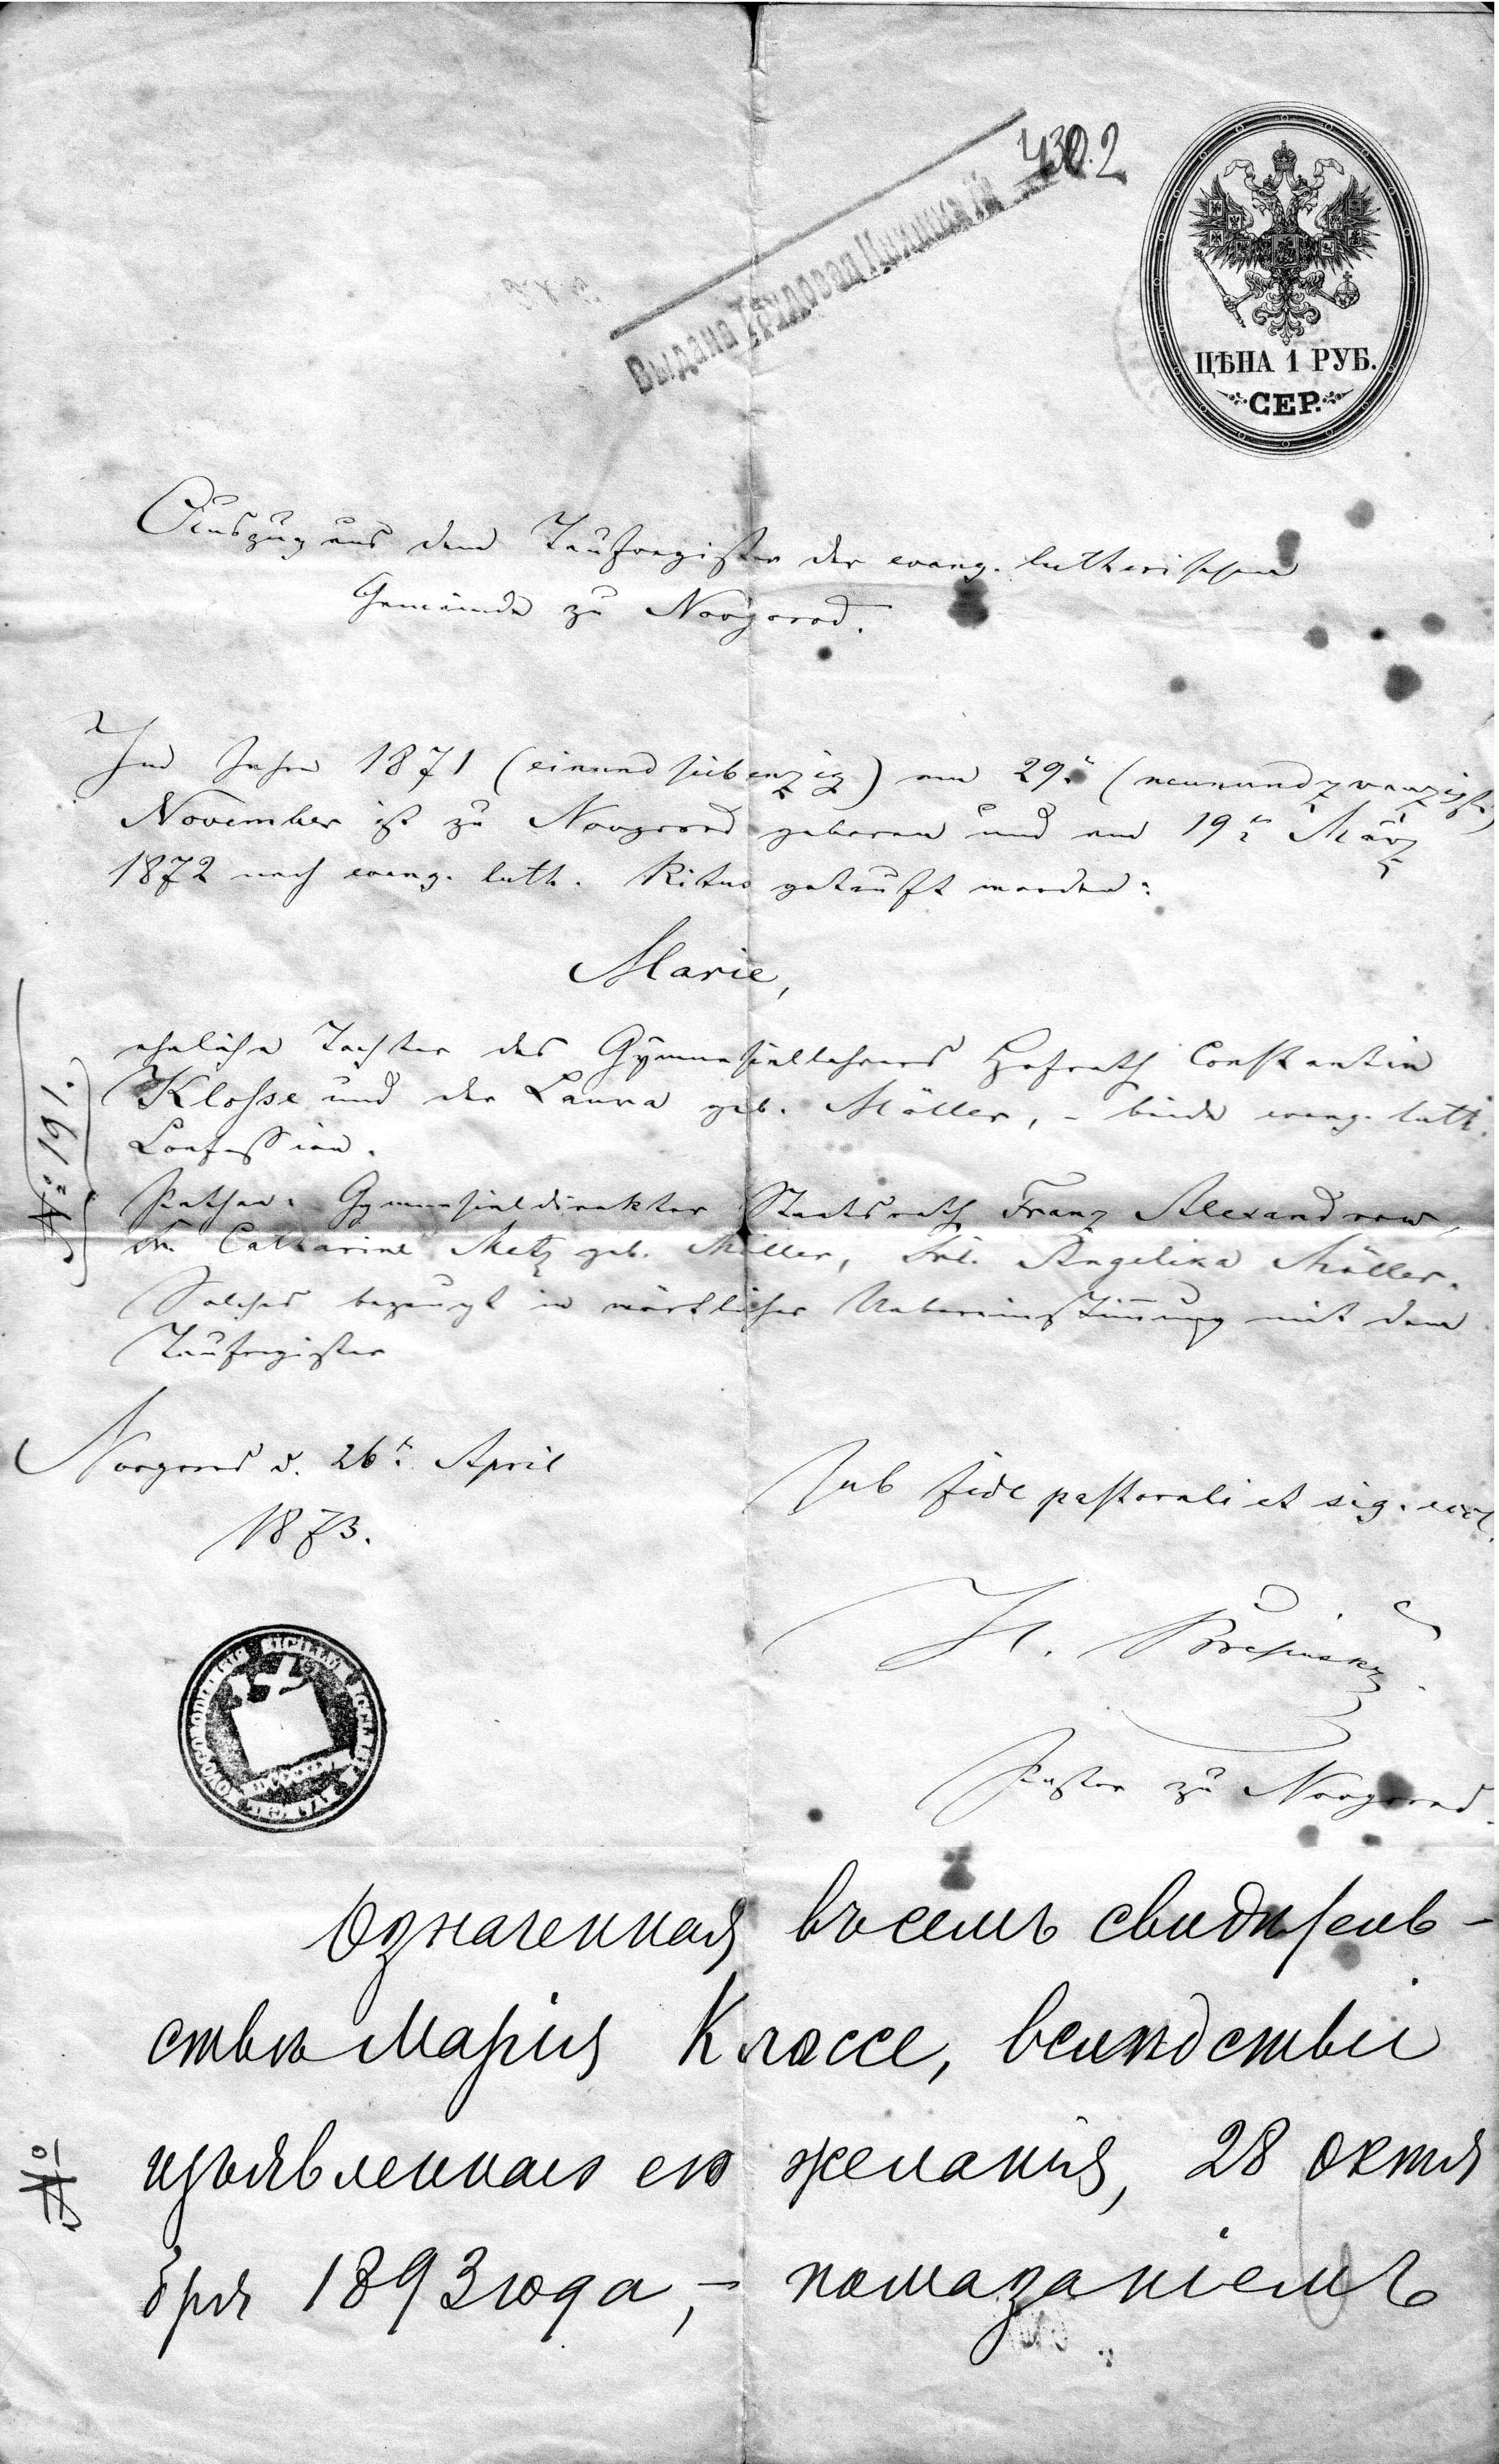 430.2
Выдана Трудовая Книжка
ЦѢНА 1 РУБ.
СЕР.
Auszug aus dem Taufregister der evang. lutherischen
Gemeinde zu Nowgorod.
Im Jahre 1871 (einundsiebenzig) am 29. (neunundzwanzigst.)
November ist zu Nowgorod geboren und am 19 März
1872 nach evang. luth. Ritus getauft worden:
Marie,
eheliche Tochter des Gymnasiallehrers Hofrath Constantin
Klosse und der Laura geb. Möller, – beide evang. luth.
Confession.
№ 191.
Pathen: Gymnasialdirektor Staatsrath Franz Alexandrow,
Fr. Catharine Metz geb. Möller, Frl. Angelika Möller.
Solches bezeugt in wörtlicher Uebereinstimmung mit dem
Taufregister
Nowgorod d. 26 April
1873.
Sub fide pastorali et sig. eccl.
H.
Pastor zu Nowgorod.
SIGILLUM
Означенная въ семъ свидѣтель-
ствѣ Марія Клоссе, вслѣдствіи
изъявленнаго ею желанія, 28 октя
бря 1893 года, – помазаніемъ
№